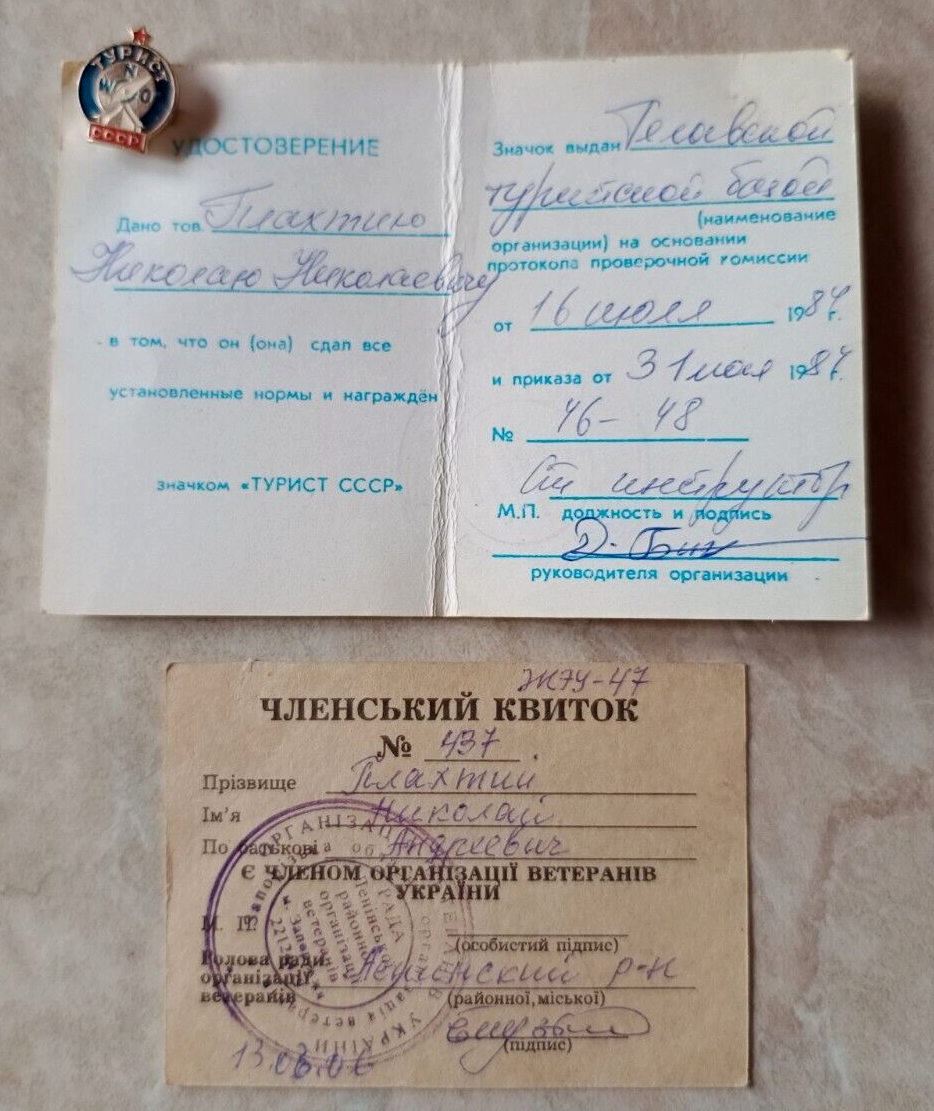 ТУРИСТ
N
W O
СССР
УДОСТОВЕРЕНИЕ
Дано тов. Плахтию
Николаю Николаевичу
в том, что он (она) сдал все
установленные нормы и награждён
значком «ТУРИСТ СССР»
Значок выдан Телавской
турийской базой
(наименование
организации) на основании
протокола проверочной комиссии
от 16 июля 1987 г.
и приказа от 31 мая 1987 г.
№ 46-48
Ст инструктор
М.П. должность и подпись
руководителя организации
ЖЭУ-47
ЧЛЕНСЬКИЙ КВИТОК
№ 437
Прізвище Плахтий
Ім'я Николай
По батькові Андреевич
Є ЧЛЕНОМ ОРГАНІЗАЦІЇ ВЕТЕРАНІВ
УКРАЇНИ
М. П.
(особистий підпис)
Голова ради
організації Ленинский р-н
ветеранів (районної, міської)
(підпис)
13.03.06